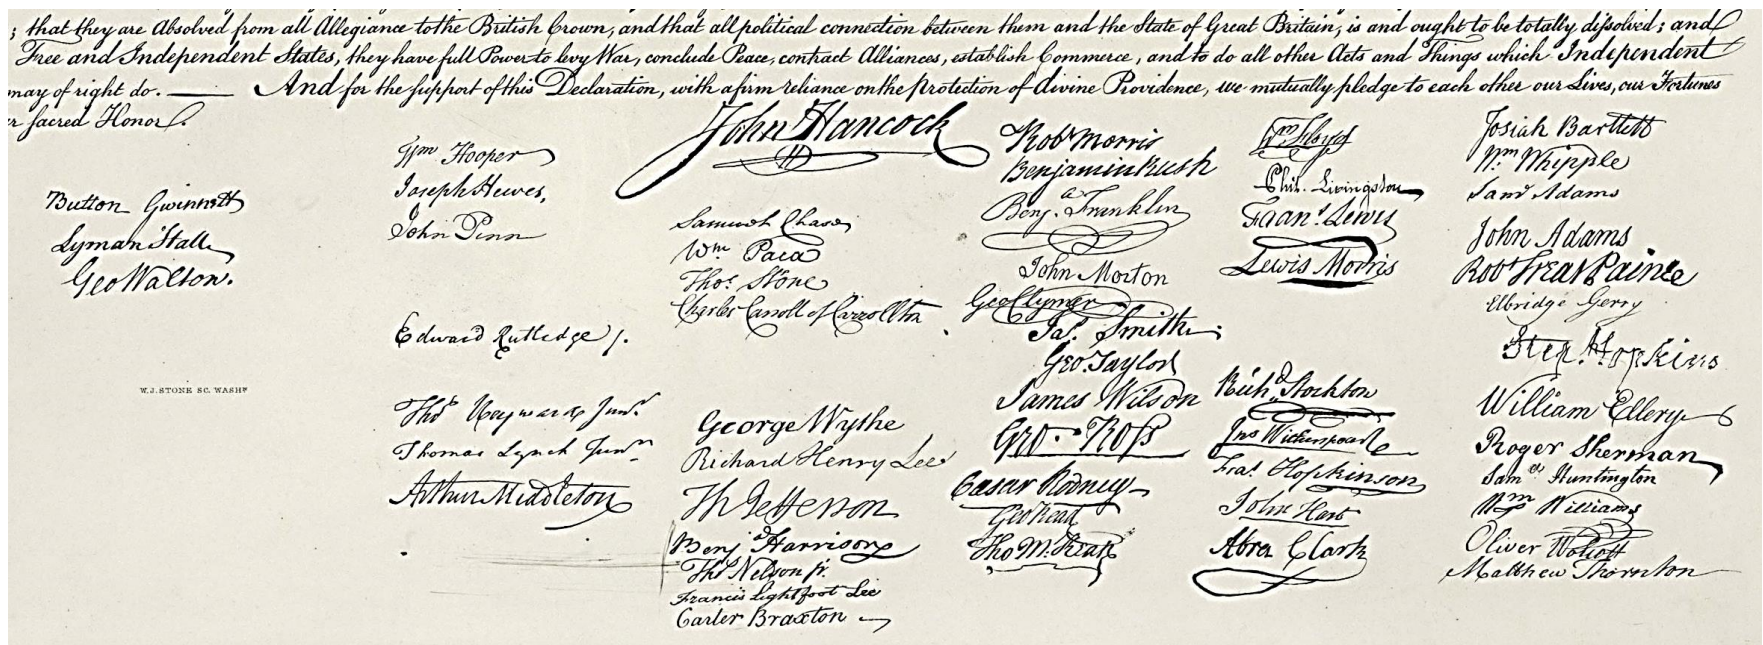 ; that they are Absolved from all Allegiance to the British Crown, and that all political connection between them and the State of Great Britain, is and ought to be totally dissolved; and
Free and Independent States, they have full Power to levy War, conclude Peace, contract Alliances, establish Commerce, and to do all other Acts and Things which Independent
may of right do. — And for the support of this Declaration, with a firm reliance on the protection of divine Providence, we mutually pledge to each other our Lives, our Fortunes
r sacred Honor.
Button Gwinnett
Lyman Hall
Geo Walton.
W. J. STONE SC. WASHN
Wm Hooper
Joseph Hewes,
John Penn
Edward Rutledge /.
Thos Heyward Junr.
Thomas Lynch Junr.
Arthur Middleton
John Hancock
Samuel Chase
Wm Paca
Thos. Stone
Charles Carroll of Carrollton
George Wythe
Richard Henry Lee
Th Jefferson
Benj Harrison
Thos Nelson jr.
Francis Lightfoot Lee
Carter Braxton
Robt Morris
Benjamin Rush
Benj. Franklin
John Morton
Geo Clymer
Jas. Smith
Geo. Taylor
James Wilson
Geo. Ross
Caesar Rodney
Geo Read
Tho M. Kean
Wm Floyd
Phil. Livingston
Frans. Lewis
Lewis Morris
Richd. Stockton
Jno Witherspoon
Fras. Hopkinson
John Hart
Abra Clark
Josiah Bartlett
Wm Whipple
Saml Adams
John Adams
Robt Treat Paine
Elbridge Gerry
Step. Hopkins
William Ellery
Roger Sherman
Saml Huntington
Wm Williams
Oliver Wolcott
Matthew Thornton